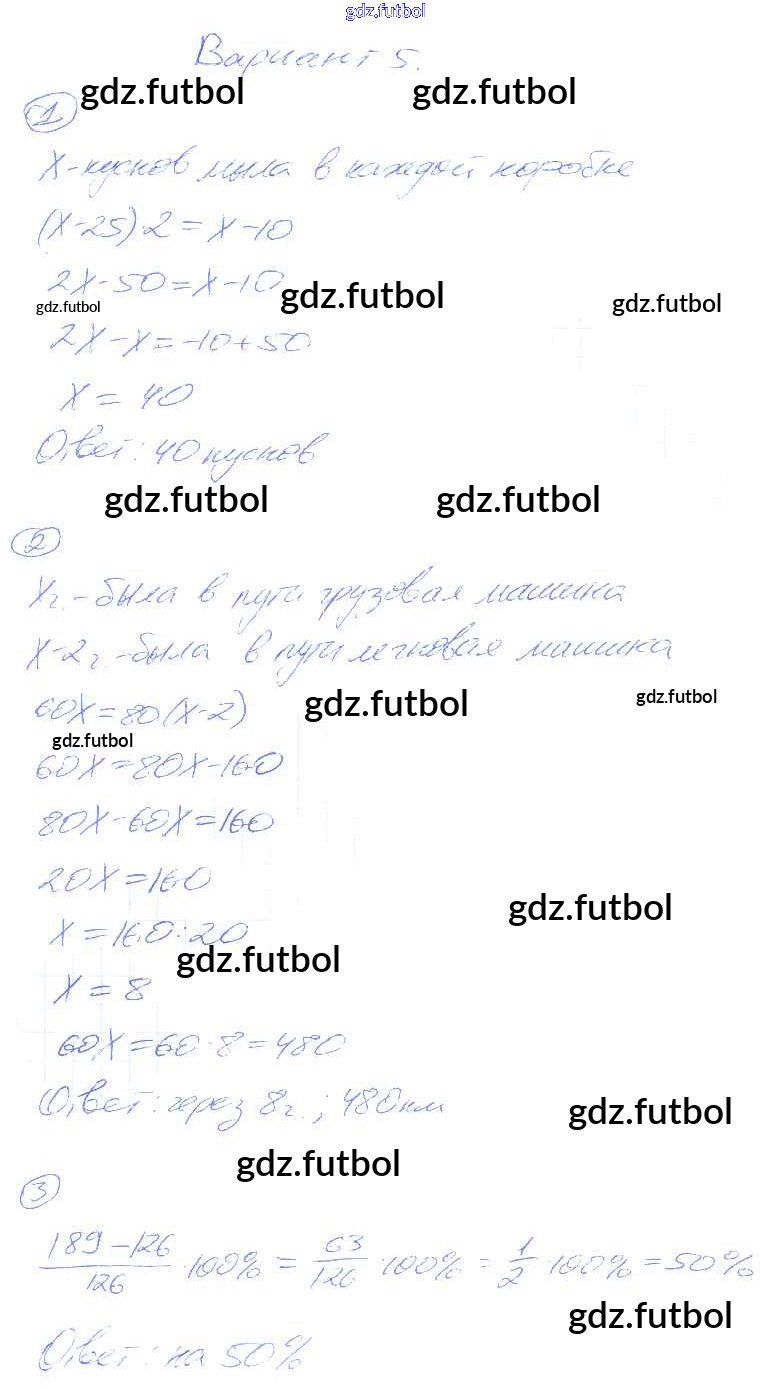 gdz.futbol
Вариант 5.
gdz.futbol gdz.futbol
1
X - кусков мыла в каждой коробке
(X-25)·2=X-10
2X-50=X-10
gdz.futbol gdz.futbol gdz.futbol
2X-X=-10+50
X = 40
Ответ: 40 кусков
gdz.futbol gdz.futbol
2
Xч. - была в пути грузовая машина
X-2ч. - была в пути легковая машина
60X=80(X-2) gdz.futbol gdz.futbol
gdz.futbol
60X=80X-160
80X-60X=160
20X=160
gdz.futbol
X=160:20
gdz.futbol
X = 8
60X=60·8=480
Ответ: через 8ч.; 480км
gdz.futbol
gdz.futbol
3
(189-126)/126 ·100% = 63/126 ·100% = 1/2 ·100% = 50%
gdz.futbol
Ответ: на 50%